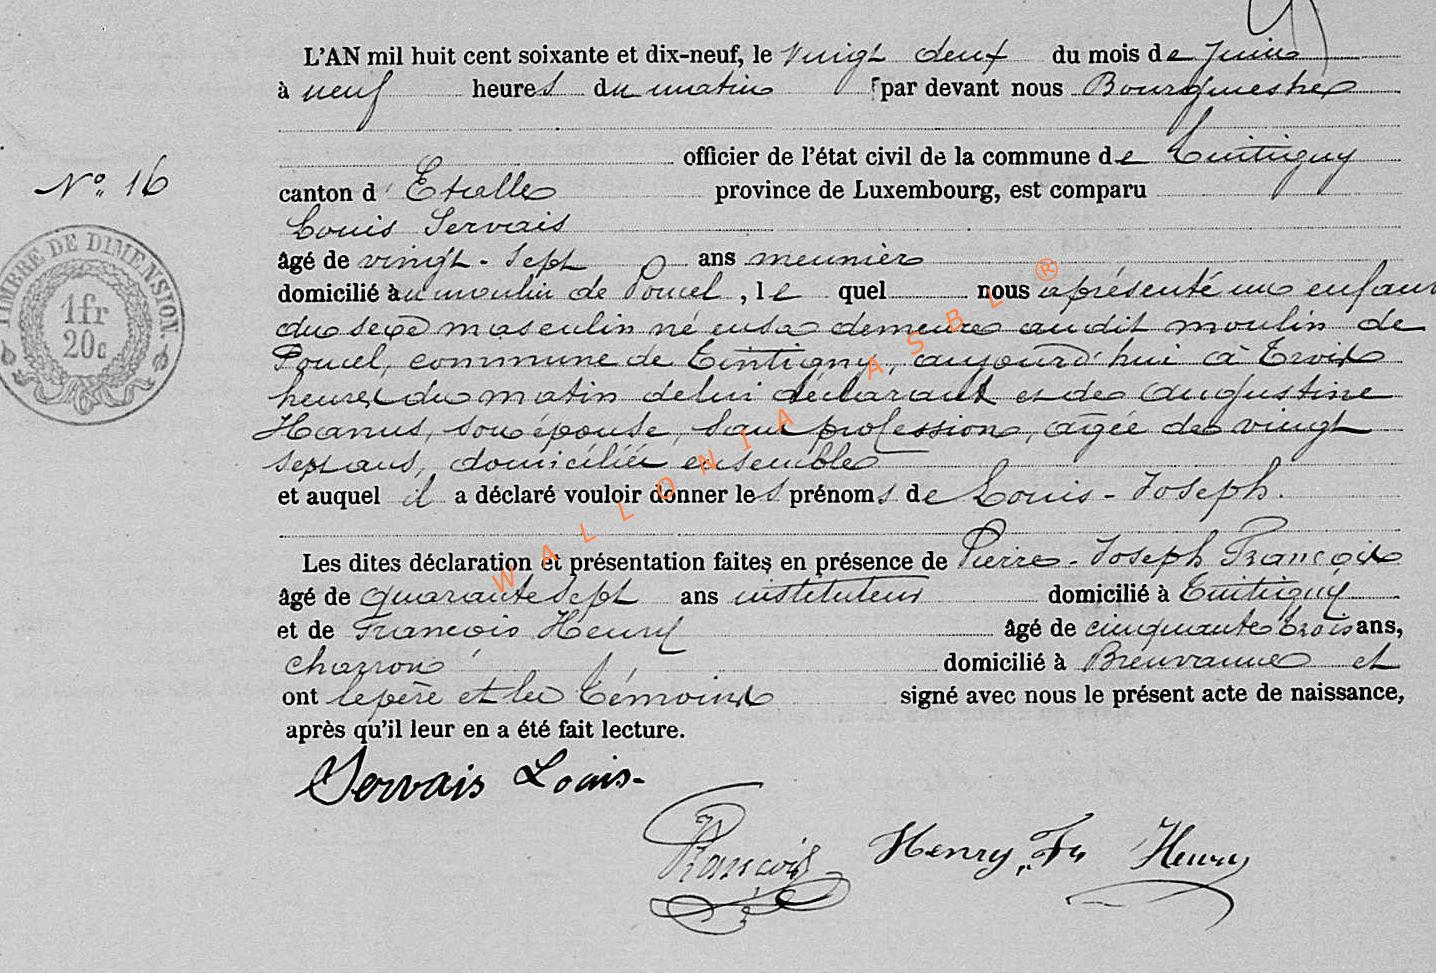 L'AN mil huit cent soixante et dix-neuf, le vingt deux du mois de Juin
à neuf heures du matin par devant nous Bourgmestre
officier de l'état civil de la commune de Tintigny
N° 16
canton d'Etalle province de Luxembourg, est comparu
Louis Servais
âgé de vingt-sept ans meunier
domicilié au moulin de Poncel, le quel nous a présenté un enfant
du sexe masculin né en sa demeure au dit moulin de
Poncel, commune de Tintigny, aujourd'hui à trois
heures du matin de lui déclarant et de Augustine
Hanus, son épouse, sans profession, âgée de vingt
sept ans, domiciliés ensemble
et auquel il a déclaré vouloir donner les prénoms de Louis-Joseph.
Les dites déclaration et présentation faites en présence de Pierre-Joseph François
âgé de quarante sept ans instituteur domicilié à Tintigny
et de François Henry âgé de cinquante trois ans,
charron domicilié à Breuvanne et
ont le père et les témoins signé avec nous le présent acte de naissance,
après qu'il leur en a été fait lecture.
Servais Louis-
François Henry, Fs Henry
TIMBRE DE DIMENSION.
1fr
20c
WALLONIA ASBL ®